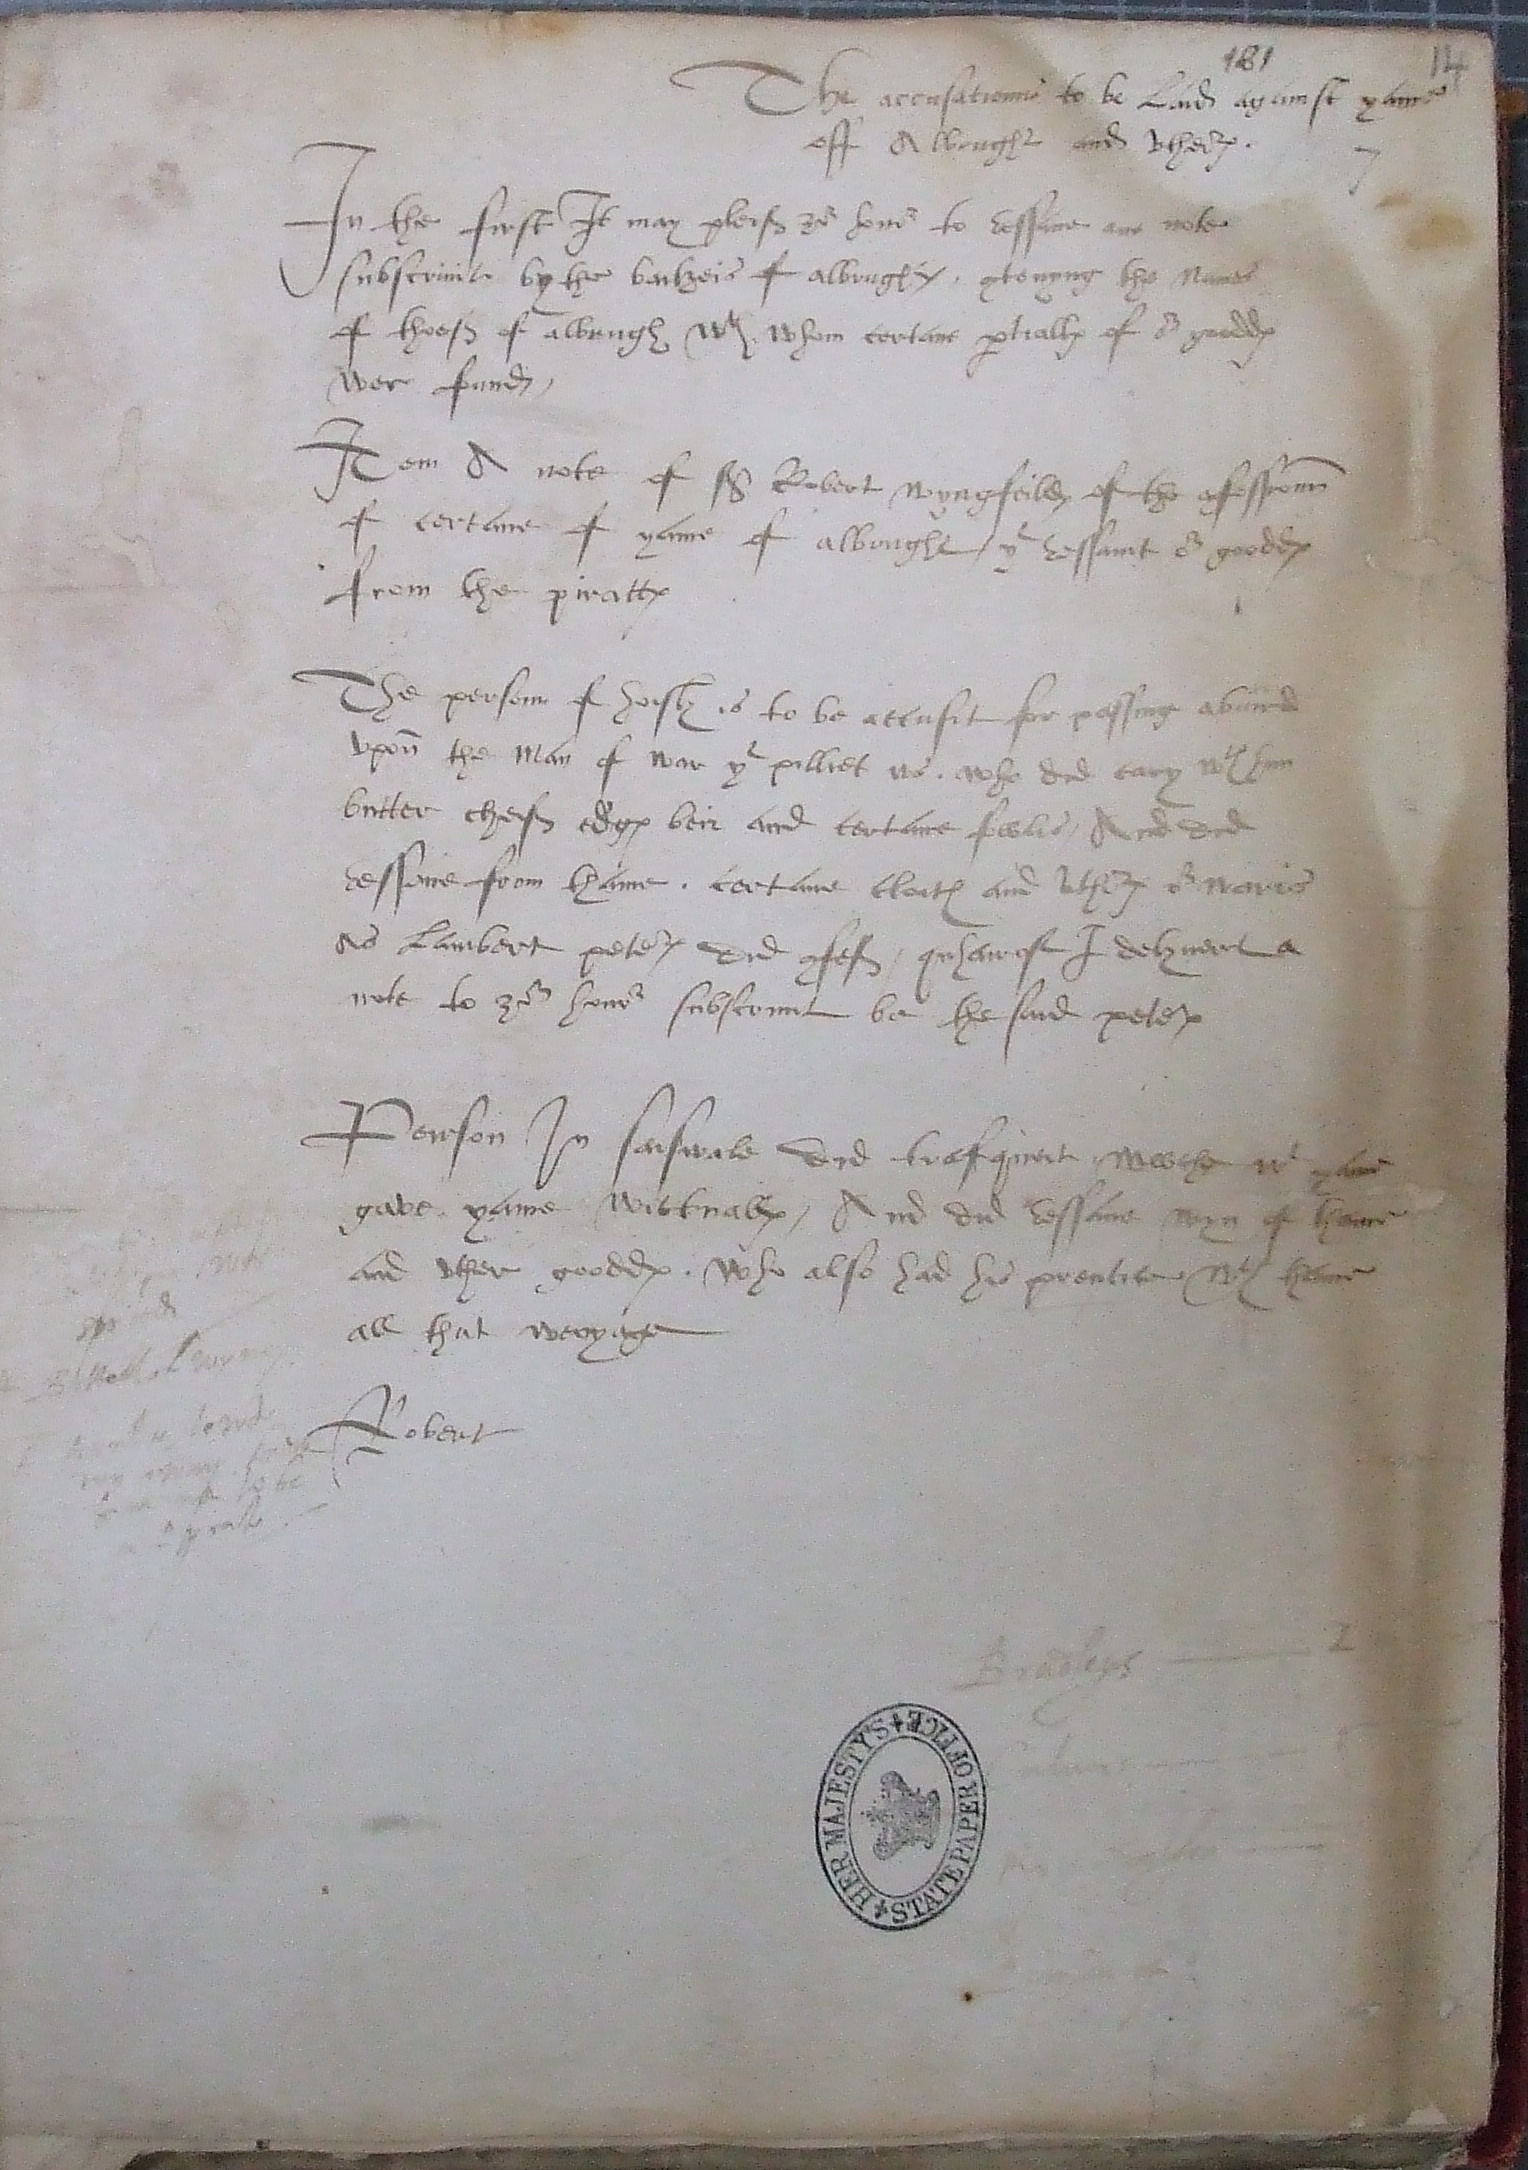 181
14
The accusationis to be Laid against yame
off Albrught and vtheris.
7
In the first It may pleis yor honor to ressaue ane note
subscriuit by the bailzeis of albrught, contenyng the Names
of thoes of albrugh wth whom certane p̱tiallis of or gooddis
wer fund,
Item A note of sr Robert Wyngfeild of the confessioun
of certane of yame of albrught yt ressauit or gooddis
from the pirattis
The persone of hoisly is to be accusit for passing abuird
vpoun the Man of War yt pilliet ws. who did cary wth him
butter cheis eggis beir and certane fowlis, And did
ressaue from thame. certane cloith and vtheris or waris
As Lambert peteris did confes, quhairof I delyuert a
note to yor honor subscriuit be the said peteris
Peirson In did wt yame
gave yame wictuallis, And did ressaue wyn of thame
and vther gooddis. Who also had his prentice wth thame
all that weoyage
Robert
to be
Bradleys 2
HER MAJESTY'S STATE PAPER OFFICE